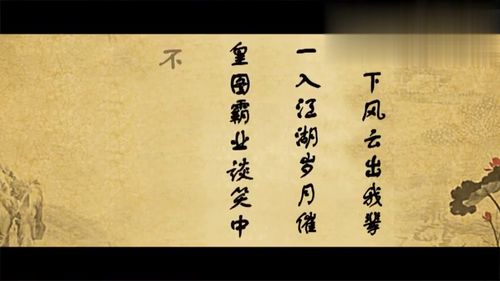 下风云出我辈
一入江湖岁月催
皇图霸业谈笑中
不